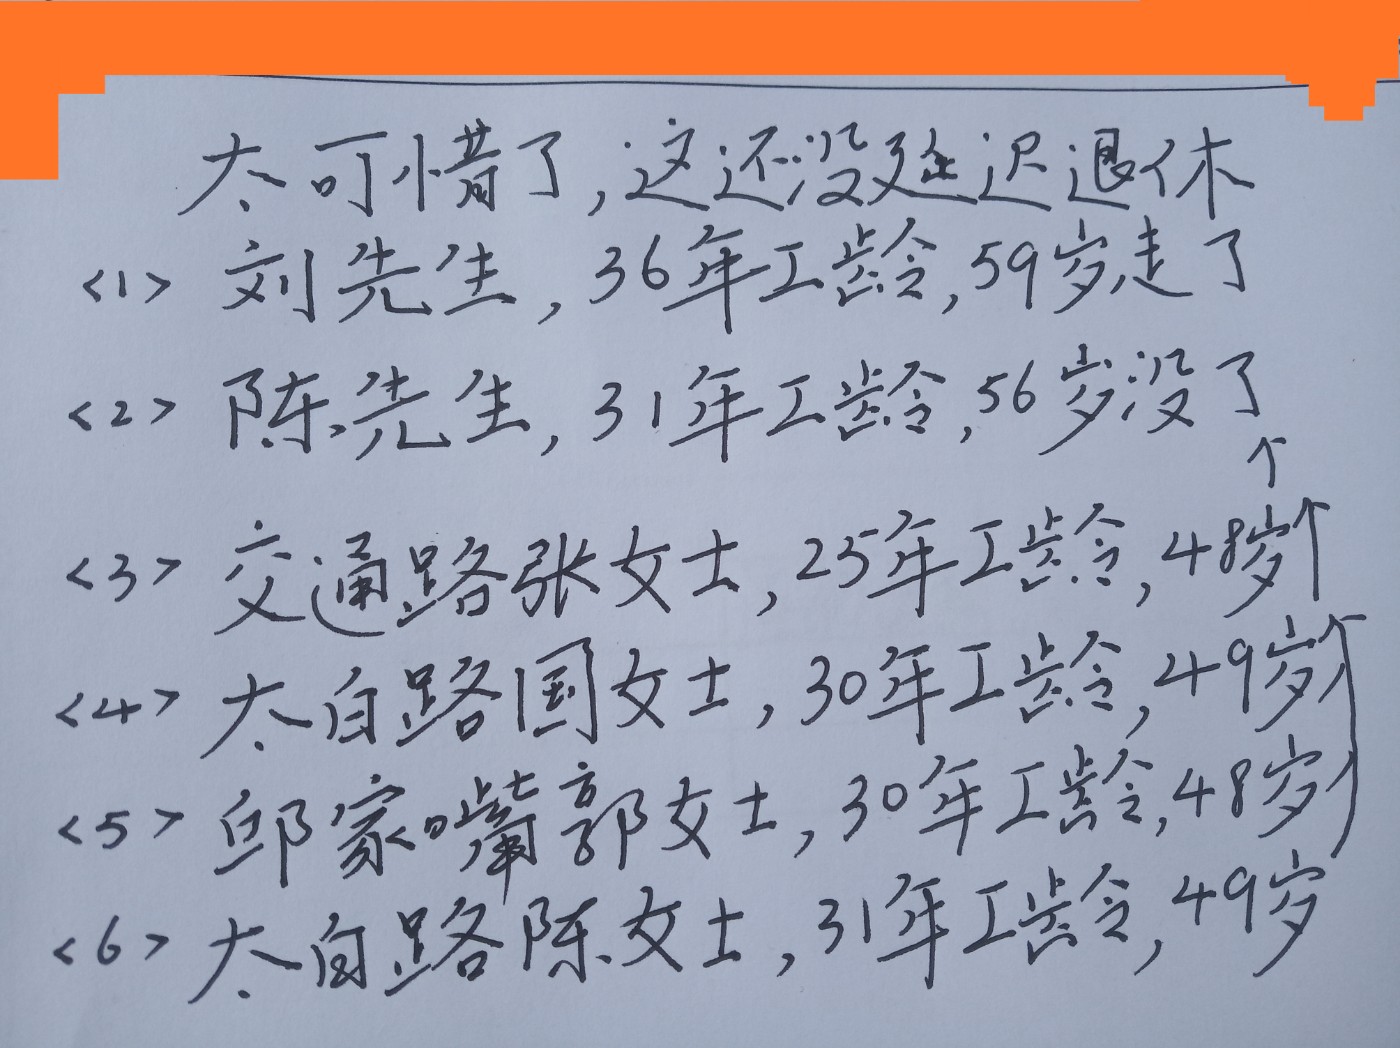 太可惜了,这还没延迟退休
<1> 刘先生,36年工龄,59岁走了
<2> 陈先生,31年工龄,56岁没了
<3> 交通路张女士,25年工龄,48岁↑
<4> 太白路国女士,30年工龄,49岁
<5> 邱家嘴郭女士,30年工龄,48岁
<6> 太白路陈女士,31年工龄,49岁